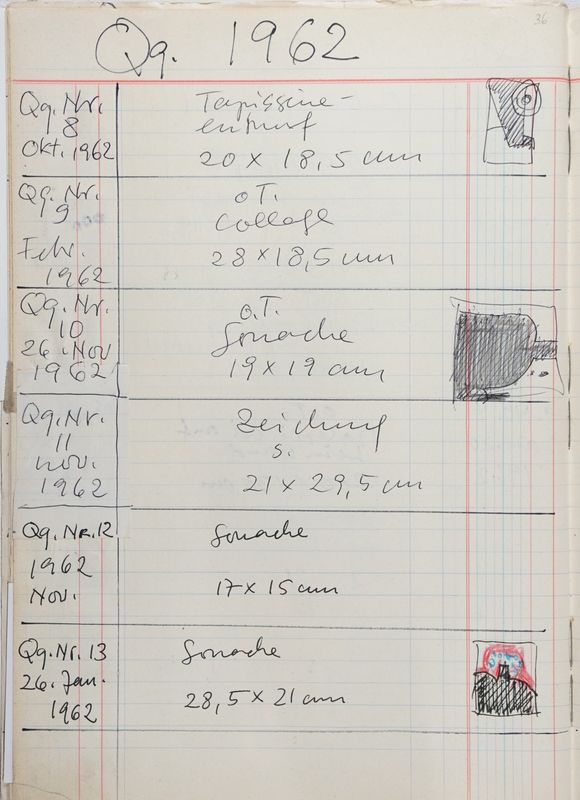 36
Qg. 1962
Qg. Nr.
8
Okt. 1962
Tapisserie-
entwurf
20 x 18,5 cm
Qg. Nr.
9
Febr.
1962
o.T.
Collage
28 x 18,5 cm
Qg. Nr.
10
26. Nov
1962
o.T.
Gouache
19 x 19 cm
Qg. Nr.
11
Nov.
1962
Zeichnung
s.
21 x 29,5 cm
Qg. Nr. 12
1962
Nov.
Gouache
17 x 15 cm
Qg. Nr. 13
26. Jan.
1962
Gouache
28,5 x 21 cm